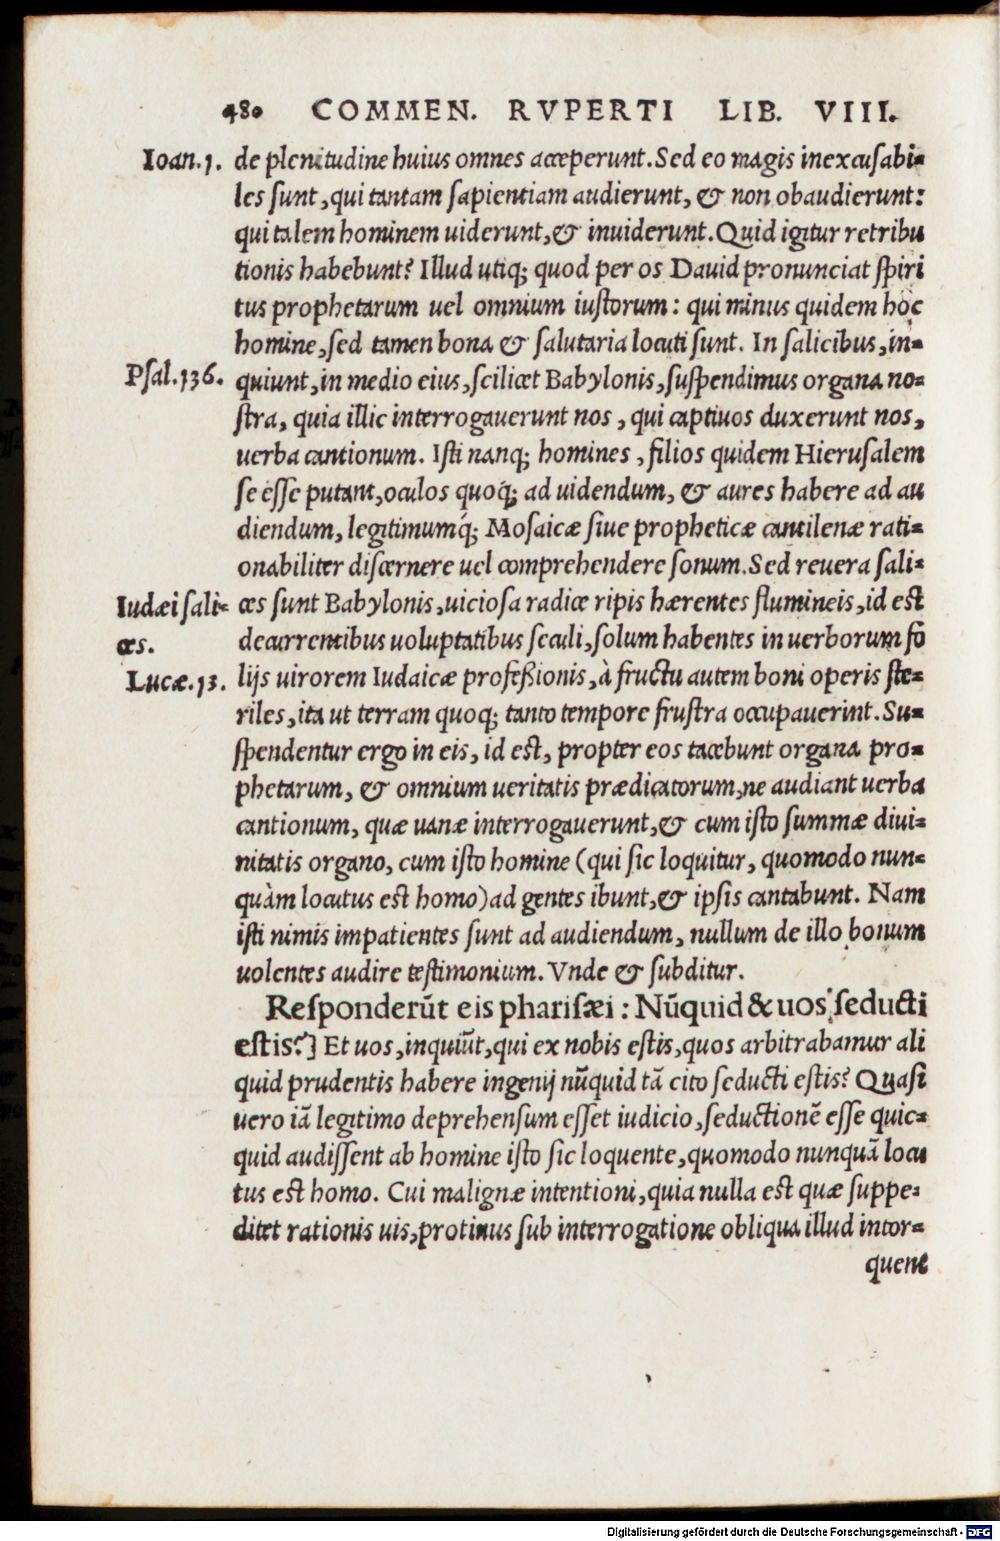 480 COMMEN. RVPERTI LIB. VIII.
Ioan.1. de plenitudine huius omnes acceperunt. Sed eo magis inexcusabi-
les sunt, qui tantam sapientiam audierunt, & non obaudierunt:
qui talem hominem uiderunt, & inuiderunt. Quid igitur retribu
tionis habebunt? Illud utiq; quod per os Dauid pronunciat spiri
tus prophetarum uel omnium iustorum: qui minus quidem hoc
homine, sed tamen bona & salutaria locuti sunt. In salicibus, in-
Psal.136. quiunt, in medio eius, scilicet Babylonis, suspendimus organa no-
stra, quia illic interrogauerunt nos, qui captiuos duxerunt nos,
uerba cantionum. Isti nanq; homines, filios quidem Hierusalem
se esse putant, oculos quoq; ad uidendum, & aures habere ad au
diendum, legitimumq́; Mosaicæ siue propheticæ cantilenæ rati-
onabiliter discernere uel comprehendere sonum. Sed reuera sali-
Iudæi sali- ces sunt Babylonis, uiciosa radice ripis hærentes flumineis, id est
ces. decurrentibus uoluptatibus seculi, solum habentes in uerborum fo
Lucæ.13. lijs uirorem Iudaicæ professionis, à fructu autem boni operis ste-
riles, ita ut terram quoq; tanto tempore frustra occupauerint. Su-
spendentur ergo in eis, id est, propter eos tacebunt organa pro-
phetarum, & omnium ueritatis prædicatorum, ne audiant uerba
cantionum, quæ uanæ interrogauerunt, & cum isto summæ diui-
nitatis organo, cum isto homine (qui sic loquitur, quomodo nun-
quàm locutus est homo) ad gentes ibunt, & ipsis cantabunt. Nam
isti nimis impatientes sunt ad audiendum, nullum de illo bonum
uolentes audire testimonium. Vnde & subditur.
Responderūt eis pharisæi: Nūquid & uos seducti
estis?] Et uos, inquiūt, qui ex nobis estis, quos arbitrabamur ali
quid prudentis habere ingenij nūquid tā cito seducti estis? Quasi
uero iā legitimo deprehensum esset iudicio, seductionē esse quic-
quid audissent ab homine isto sic loquente, quomodo nunquā locu
tus est homo. Cui malignæ intentioni, quia nulla est quæ suppe-
ditet rationis uis, protinus sub interrogatione obliqua illud intor-
quent
Digitalisierung gefördert durch die Deutsche Forschungsgemeinschaft - DFG